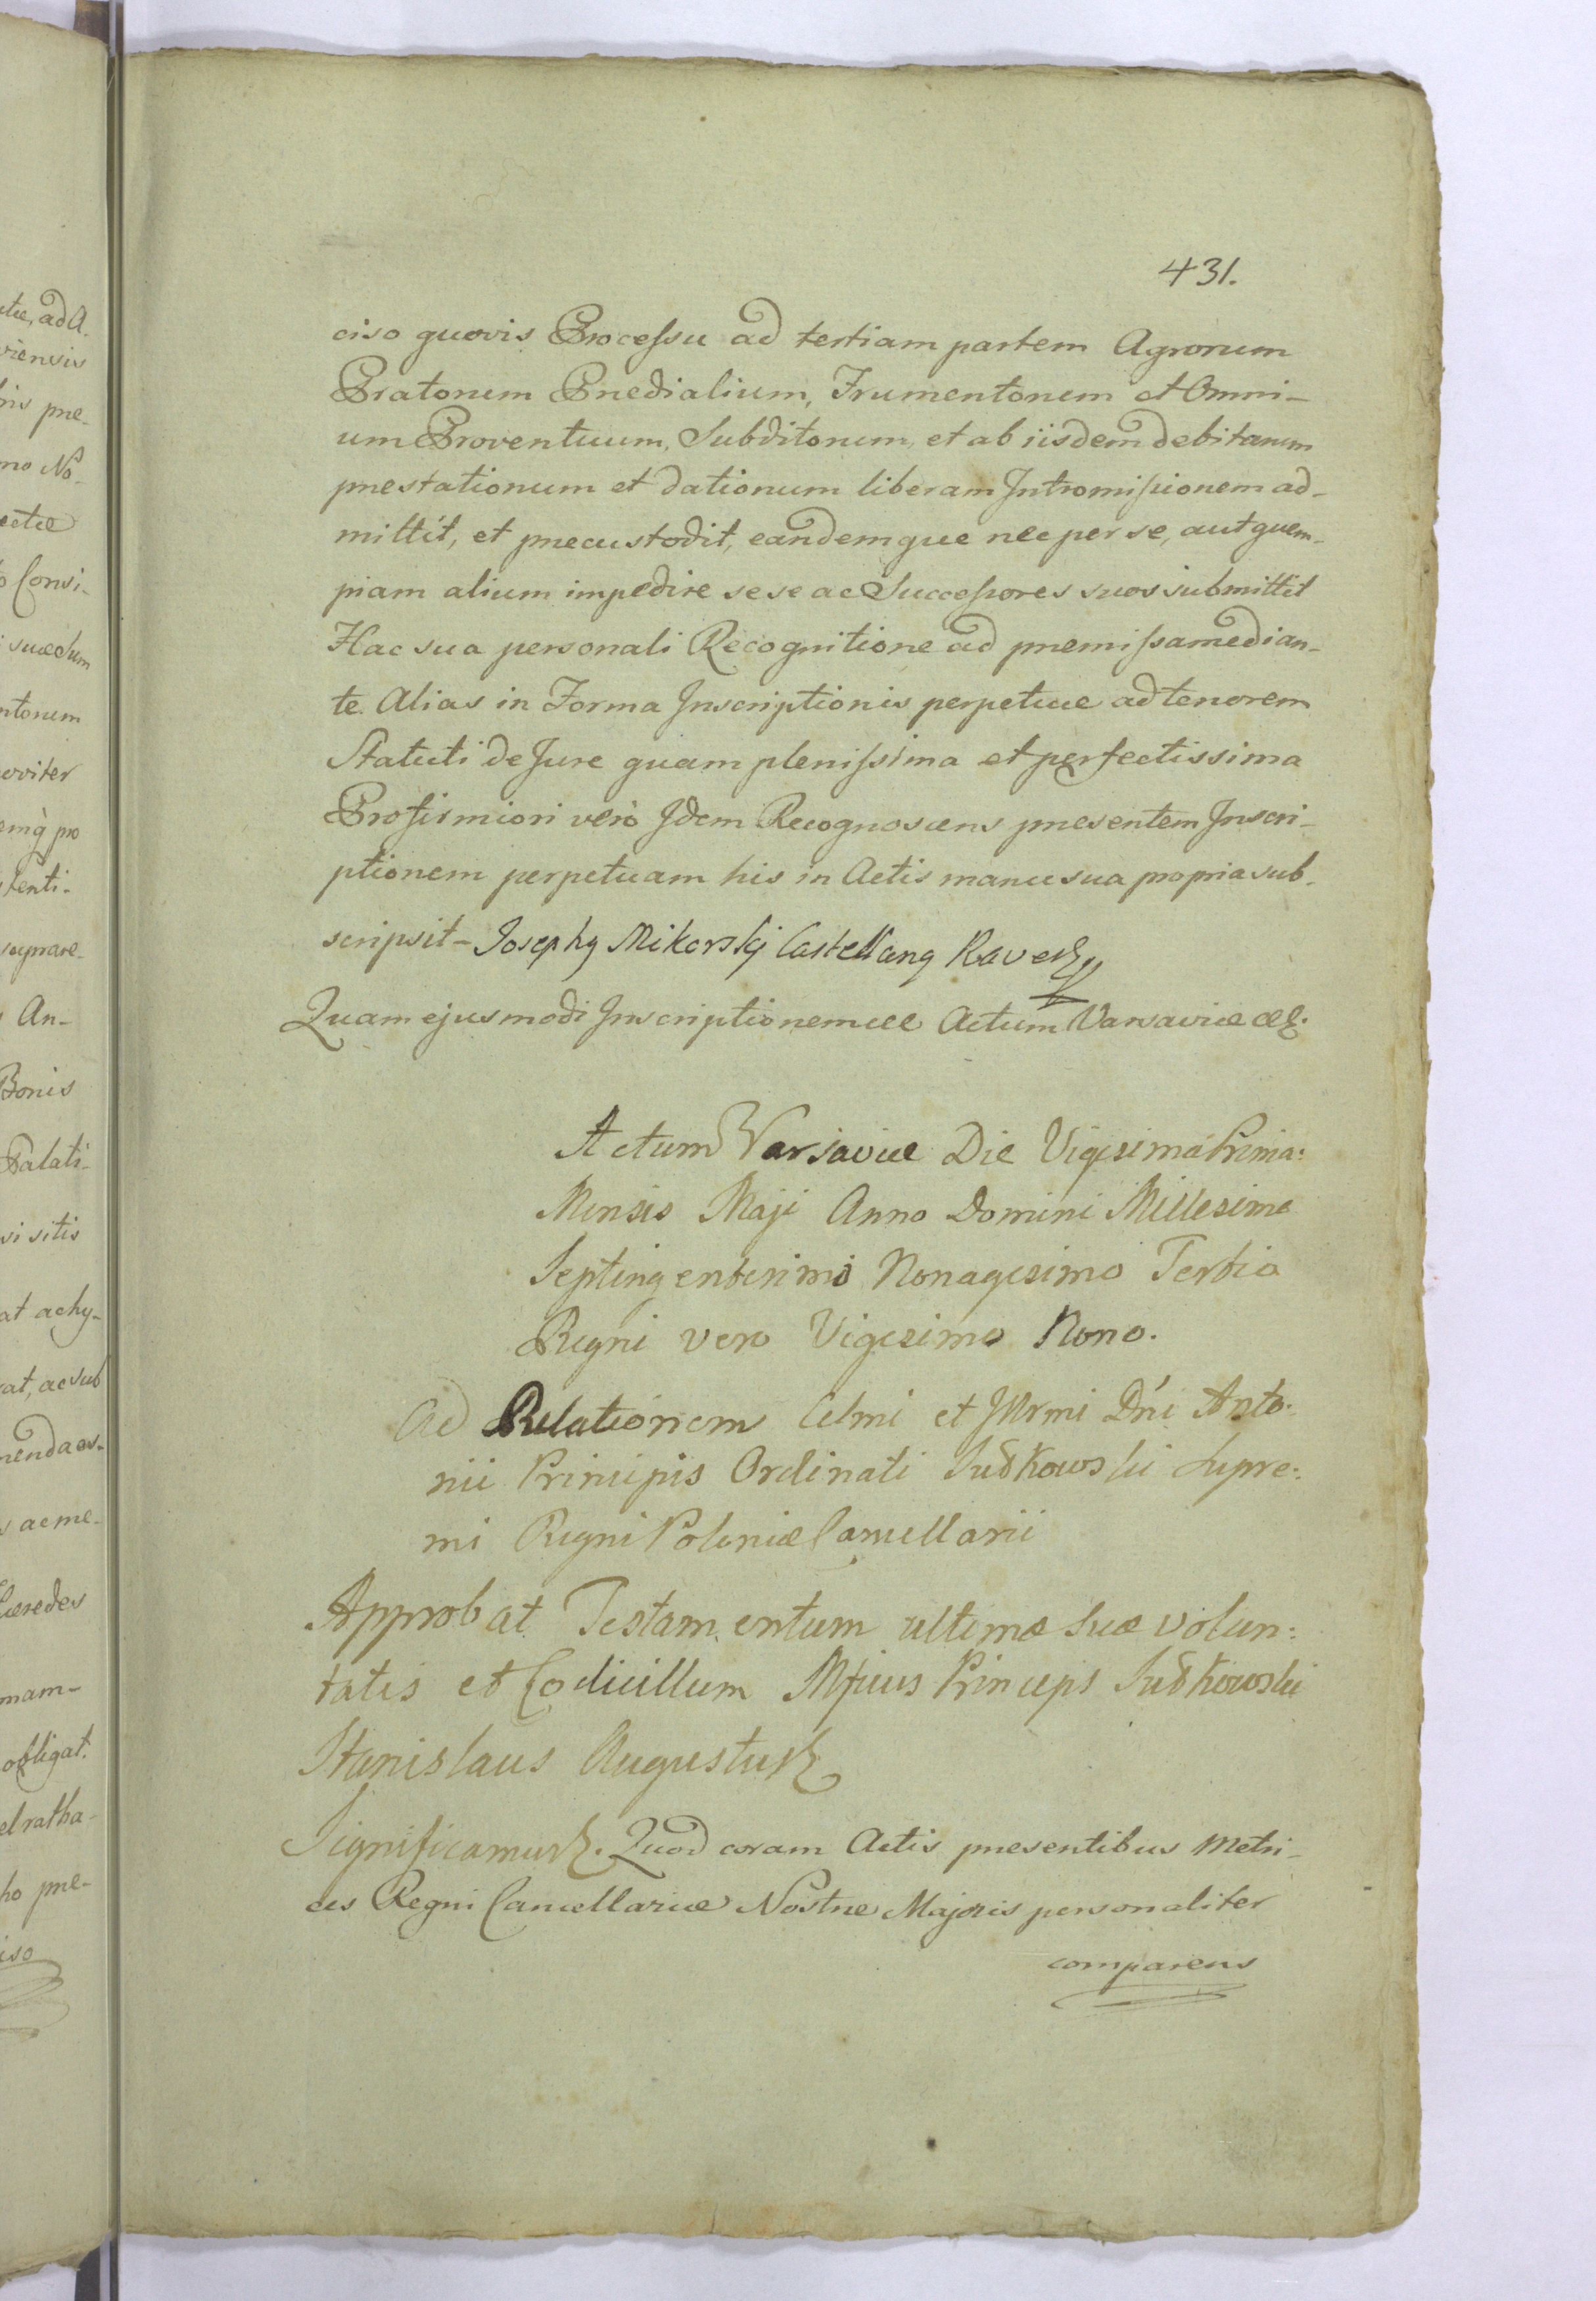 431.
ciso quovis Processu ad tertiam partem Agrorum
Pratorum Prædialium, Frumentorum et Omni-
um Proventuum, Subditorum, et ab iisdem debitarum
præstationum et dationum liberam Intromissionem ad-
mittit, et præcustodit, eandemque nec per se, aut quem-
piam alium impedire sese ac Successores suos submittit
Hac sua personali Recognitione ad præmissa median-
te. Alias in Forma Inscriptionis perpetuæ ad tenorem
Statuti de Jure quam plenissima et perfectissima
Pro firmiori verò Idem Recognoscens præsentem Inscri-
ptionem perpetuam his in Actis manu sua propria sub-
scripsit - Josephg Mikorskj Castellang Raven
Quam ejusmodi Inscriptionem etc Actum Varsaviæ etc.
Actum Varsaviæ Die Vigesima Prima:
Mensis Maji Anno Domini Millesimo
Septingentesimo Nonagesimo Tertio
Regni vero Vigesimo Nono.
Ad Relationem Celmi et Illrmi Dńi Anto:
nii Principis Ordinati Sułkowski Supre:
mi Regni Poloniæ Cancellarii
Approbat Testamentum ultimæ suæ volun:
tatis et Codicillum Princeps Sułkowski
Stanislaus Augustus
Significamus. Quod coram Actis præsentibus Metri-
ces Regni Cancellariæ Nostræ Majoris personaliter
comparens
ctæ, ad A.
viensis
ris præ-
mo No-
ectæ
o Consi-
suæ Sum
ntorum
oviter
emq̀ pro
tenti-
An-
Bonis
Palati-
si sitis
at achy-
rat, ac sub
nenda es-
s ac me-
Hæredes
mam-
obligat.
el ratha-
ho præ-
iso